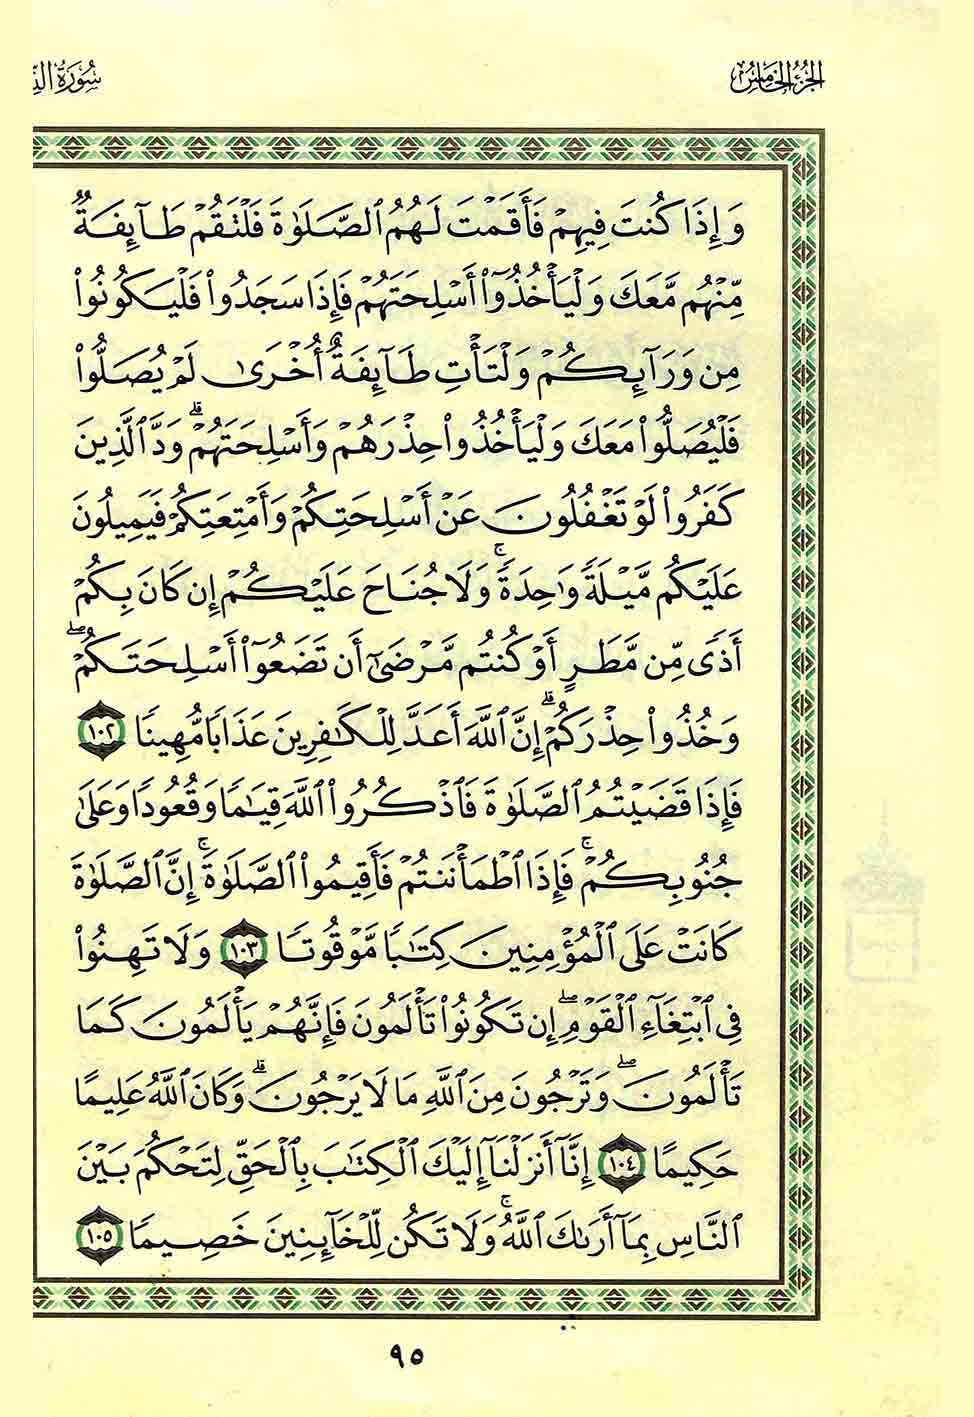 الجزء الخامس
سورة
وَإِذَا كُنتَ فِيهِمْ فَأَقَمْتَ لَهُمُ ٱلصَّلَوٰةَ فَلْتَقُمْ طَآئِفَةٌ
مِّنْهُم مَّعَكَ وَلْيَأْخُذُوٓا۟ أَسْلِحَتَهُمْ فَإِذَا سَجَدُوا۟ فَلْيَكُونُوا۟
مِن وَرَآئِكُمْ وَلْتَأْتِ طَآئِفَةٌ أُخْرَىٰ لَمْ يُصَلُّوا۟
فَلْيُصَلُّوا۟ مَعَكَ وَلْيَأْخُذُوا۟ حِذْرَهُمْ وَأَسْلِحَتَهُمْ ۗ وَدَّ ٱلَّذِينَ
كَفَرُوا۟ لَوْ تَغْفُلُونَ عَنْ أَسْلِحَتِكُمْ وَأَمْتِعَتِكُمْ فَيَمِيلُونَ
عَلَيْكُم مَّيْلَةً وَٰحِدَةً ۚ وَلَا جُنَاحَ عَلَيْكُمْ إِن كَانَ بِكُمْ
أَذًى مِّن مَّطَرٍ أَوْ كُنتُم مَّرْضَىٰٓ أَن تَضَعُوٓا۟ أَسْلِحَتَكُمْ ۖ
وَخُذُوا۟ حِذْرَكُمْ ۗ إِنَّ ٱللَّهَ أَعَدَّ لِلْكَٰفِرِينَ عَذَابًا مُّهِينًا ١٠٢
فَإِذَا قَضَيْتُمُ ٱلصَّلَوٰةَ فَٱذْكُرُوا۟ ٱللَّهَ قِيَٰمًا وَقُعُودًا وَعَلَىٰ
جُنُوبِكُمْ ۚ فَإِذَا ٱطْمَأْنَنتُمْ فَأَقِيمُوا۟ ٱلصَّلَوٰةَ ۚ إِنَّ ٱلصَّلَوٰةَ
كَانَتْ عَلَى ٱلْمُؤْمِنِينَ كِتَٰبًا مَّوْقُوتًا ١٠٣ وَلَا تَهِنُوا۟
فِى ٱبْتِغَآءِ ٱلْقَوْمِ ۖ إِن تَكُونُوا۟ تَأْلَمُونَ فَإِنَّهُمْ يَأْلَمُونَ كَمَا
تَأْلَمُونَ ۖ وَتَرْجُونَ مِنَ ٱللَّهِ مَا لَا يَرْجُونَ ۗ وَكَانَ ٱللَّهُ عَلِيمًا
حَكِيمًا ١٠٤ إِنَّآ أَنزَلْنَآ إِلَيْكَ ٱلْكِتَٰبَ بِٱلْحَقِّ لِتَحْكُمَ بَيْنَ
ٱلنَّاسِ بِمَآ أَرَىٰكَ ٱللَّهُ ۚ وَلَا تَكُن لِّلْخَآئِنِينَ خَصِيمًا ١٠٥
٩٥